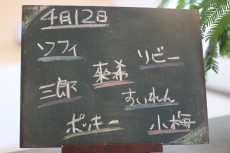 4月12日
ソフィ
リビー
来希
三郎
すいれん
ポッキー
小梅